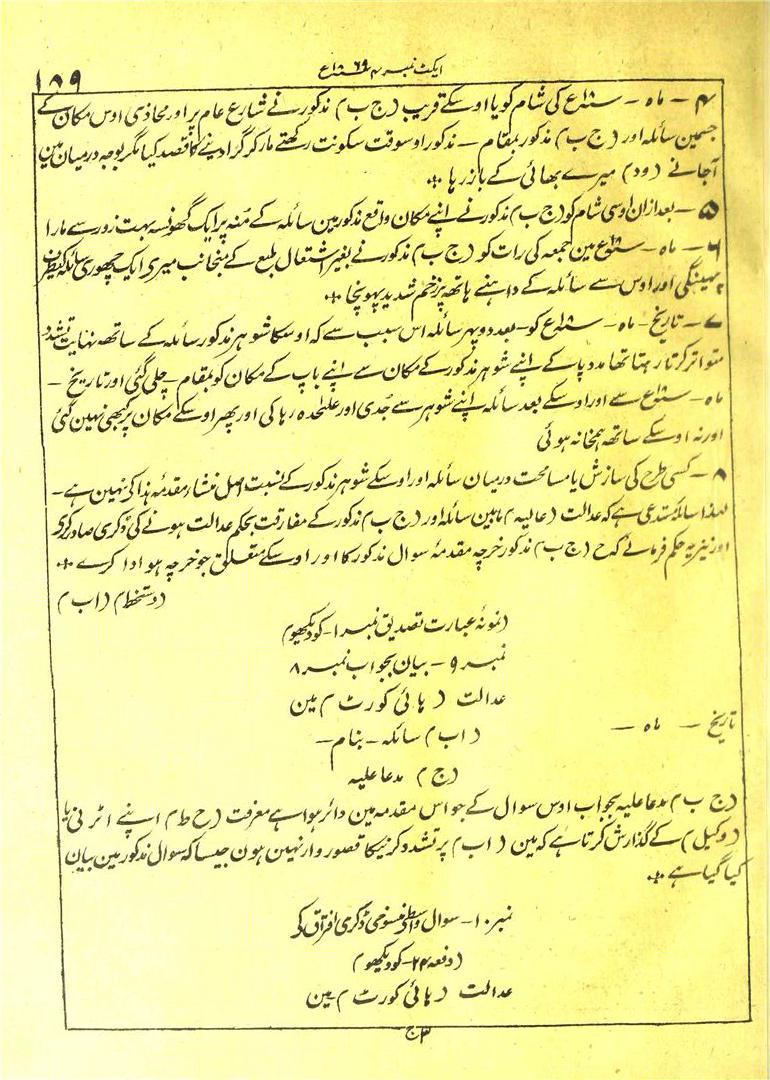 ایکٹ نمبر ۴ سنہ ۱۸۶۹ع
۱۸۹
۴ – ماہ – سنہ ۱۸ ع کی شام کو یا اوسکے قریب (ج ب) مذکور نے شارع عام پر اور محاذی اوس مکان کے
جسمین سائلہ اور (ج ب) مذکور بمقام – مذکور اوسوقت سکونت رکھتے مار کر گرا دینے کا قصد کیا مگر بوجہ درمیان مین
آجانے (و د) میرے بھائی کے باز رہا ؞
۵ – بعد ازان اوسی شام کو (ج ب) مذکور نے اپنے مکان واقع مذکور مین سائلہ کے منہ پر ایک گھونسہ بہت زور سے مارا
۶ – ماہ – سنہ ۱۸ ع مین جمعہ کی رات کو (ج ب) مذکور نے بغیر اشتعال طبع کے منجانب میری ایک چھوری سائلہ کیطرف
پھینکی اور اوس سے سائلہ کے داہنے ہاتھ پر زخم شدید پہونچا ؞
۷ – تاریخ – ماہ – سنہ ۱۸ ع کو بعد دوپہر سائلہ اس سبب سے کہ اوسکا شوہر مذکور سائلہ کے ساتھ نہایت تشدد
متواتر کرتا رہتا تھا مدد پا کے اپنے شوہر مذکور کے مکان سے اپنے باپ کے مکان کو بمقام – چلی گئی اور تاریخ –
ماہ – سنہ ۱۸ ع سے اور اوسکے بعد سائلہ اپنے شوہر سے جُدی اور علٰحدہ رہا کی اور پھر اوسکے مکان پر کبھی نہین گئی
اور نہ اوسکے ساتھ ہمخانہ ہوئی
۸ – کسی طرح کی سازش یا مسامحت درمیان سائلہ اور اوسکے شوہر مذکور کے نسبت اصل منشار مقدمہ ہذا کی نہین ہے –
لہذا سائلہ مستدعی ہے کہ عدالت (عالیہ) مابین سائلہ اور (ج ب) مذکور کے مفارقت بحکم عدالت ہونے کی ڈگری صادر کرے
اور نیز یہ حکم فرمائے کہ (ج ب) مذکور خرچہ مقدمہ سوال مذکور کا اور اوسکے متعلق جو خرچہ ہو ادا کرے ؞
(دستخط) (ا ب)
(نمونہ عبارت تصدیق نمبر ۱ – کو دیکھو)
نمبر ۹ – بیان بجواب نمبر ۸
عدالت (ہائی کورٹ) مین
تاریخ – ماہ –
(ا ب) سائلہ – بنام –
(ج) مدعا علیہ
(ج ب) مدعا علیہ بجواب اوس سوال کے جو اس مقدمہ مین دائر ہوا ہے معرفت (ح ط) اپنے اٹرنی یا
(وکیل) کے گذارش کرتا ہے کہ مین (ا ب) پر تشدد کرنیکا قصور وار نہین ہون جیسا کہ سوال مذکور مین بیان
کیا گیا ہے ؞
نمبر ۱۰ – سوال واسطے منسوخی ڈکری افتراق کی
(دفعہ ۲۴ – کو دیکھو)
عدالت (ہائی کورٹ) مین
ج ۳